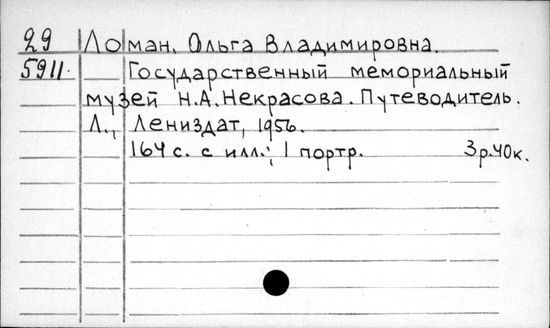 29 Ломан, Ольга Владимировна.
5911. Государственный мемориальный
музей Н.А.Некрасова. Путеводитель.
Л., Лениздат, 1956.
164 с. с илл.; 1 портр. 3р.40к.